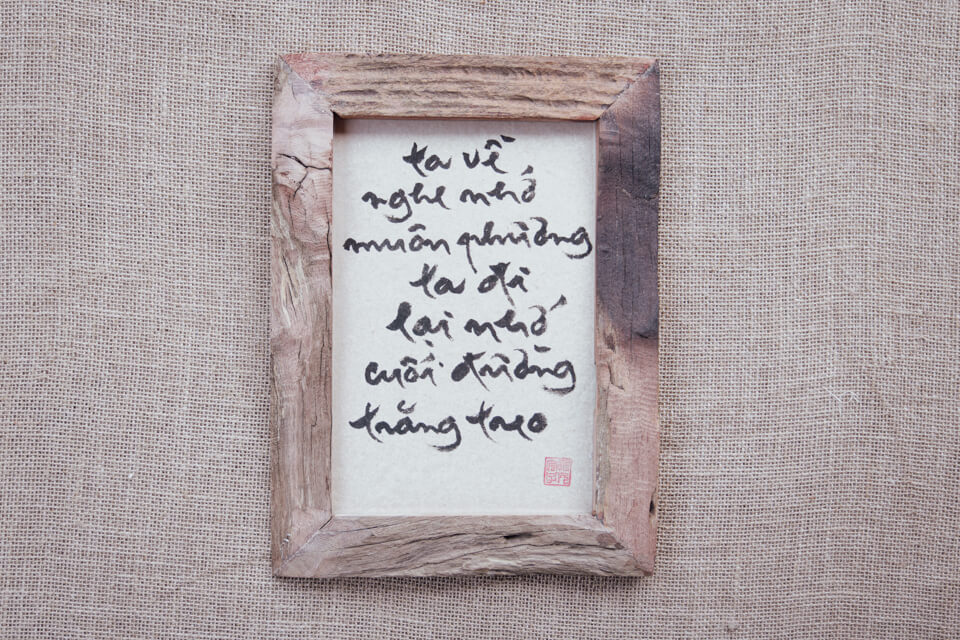 ta về
nghe nhớ
muôn phương
ta đi
lại nhớ
cuối đường
trăng treo